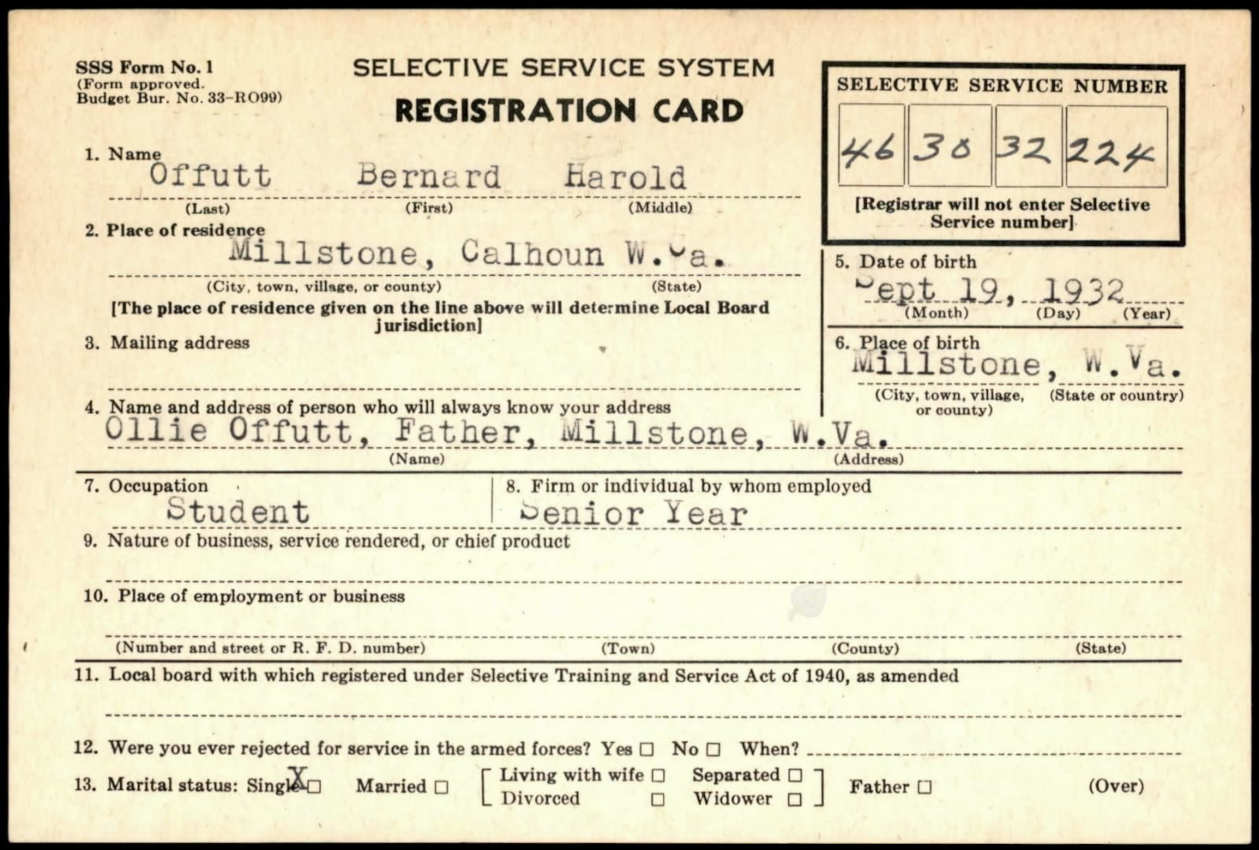 SSS Form No. 1
(Form approved.
Budget Bur. No. 33-RO99)
SELECTIVE SERVICE SYSTEM
REGISTRATION CARD
SELECTIVE SERVICE NUMBER
46 30 32 224
[Registrar will not enter Selective
Service number]
1. Name
Offutt Bernard Harold
(Last) (First) (Middle)
2. Place of residence
Millstone, Calhoun W.Va.
(City, town, village, or county) (State)
[The place of residence given on the line above will determine Local Board
jurisdiction]
3. Mailing address
5. Date of birth
Sept 19, 1932
(Month) (Day) (Year)
6. Place of birth
Millstone, W.Va.
(City, town, village, (State or country)
or county)
4. Name and address of person who will always know your address
Ollie Offutt, Father, Millstone, W.Va.
(Name) (Address)
7. Occupation
Student
8. Firm or individual by whom employed
Senior Year
9. Nature of business, service rendered, or chief product
10. Place of employment or business
(Number and street or R. F. D. number) (Town) (County) (State)
11. Local board with which registered under Selective Training and Service Act of 1940, as amended
12. Were you ever rejected for service in the armed forces? Yes □ No □ When?
13. Marital status: Single X □ Married □ [Living with wife □ Separated □] Father □ (Over)
Divorced □ Widower □